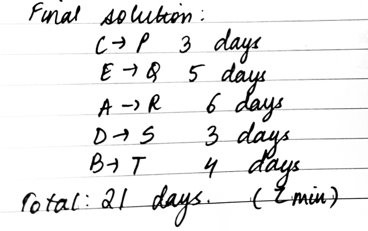 Final solution:
C → P 3 days
E → Q 5 days
A → R 6 days
D → S 3 days
B → T 4 days
Total: 21 days. (Z min)